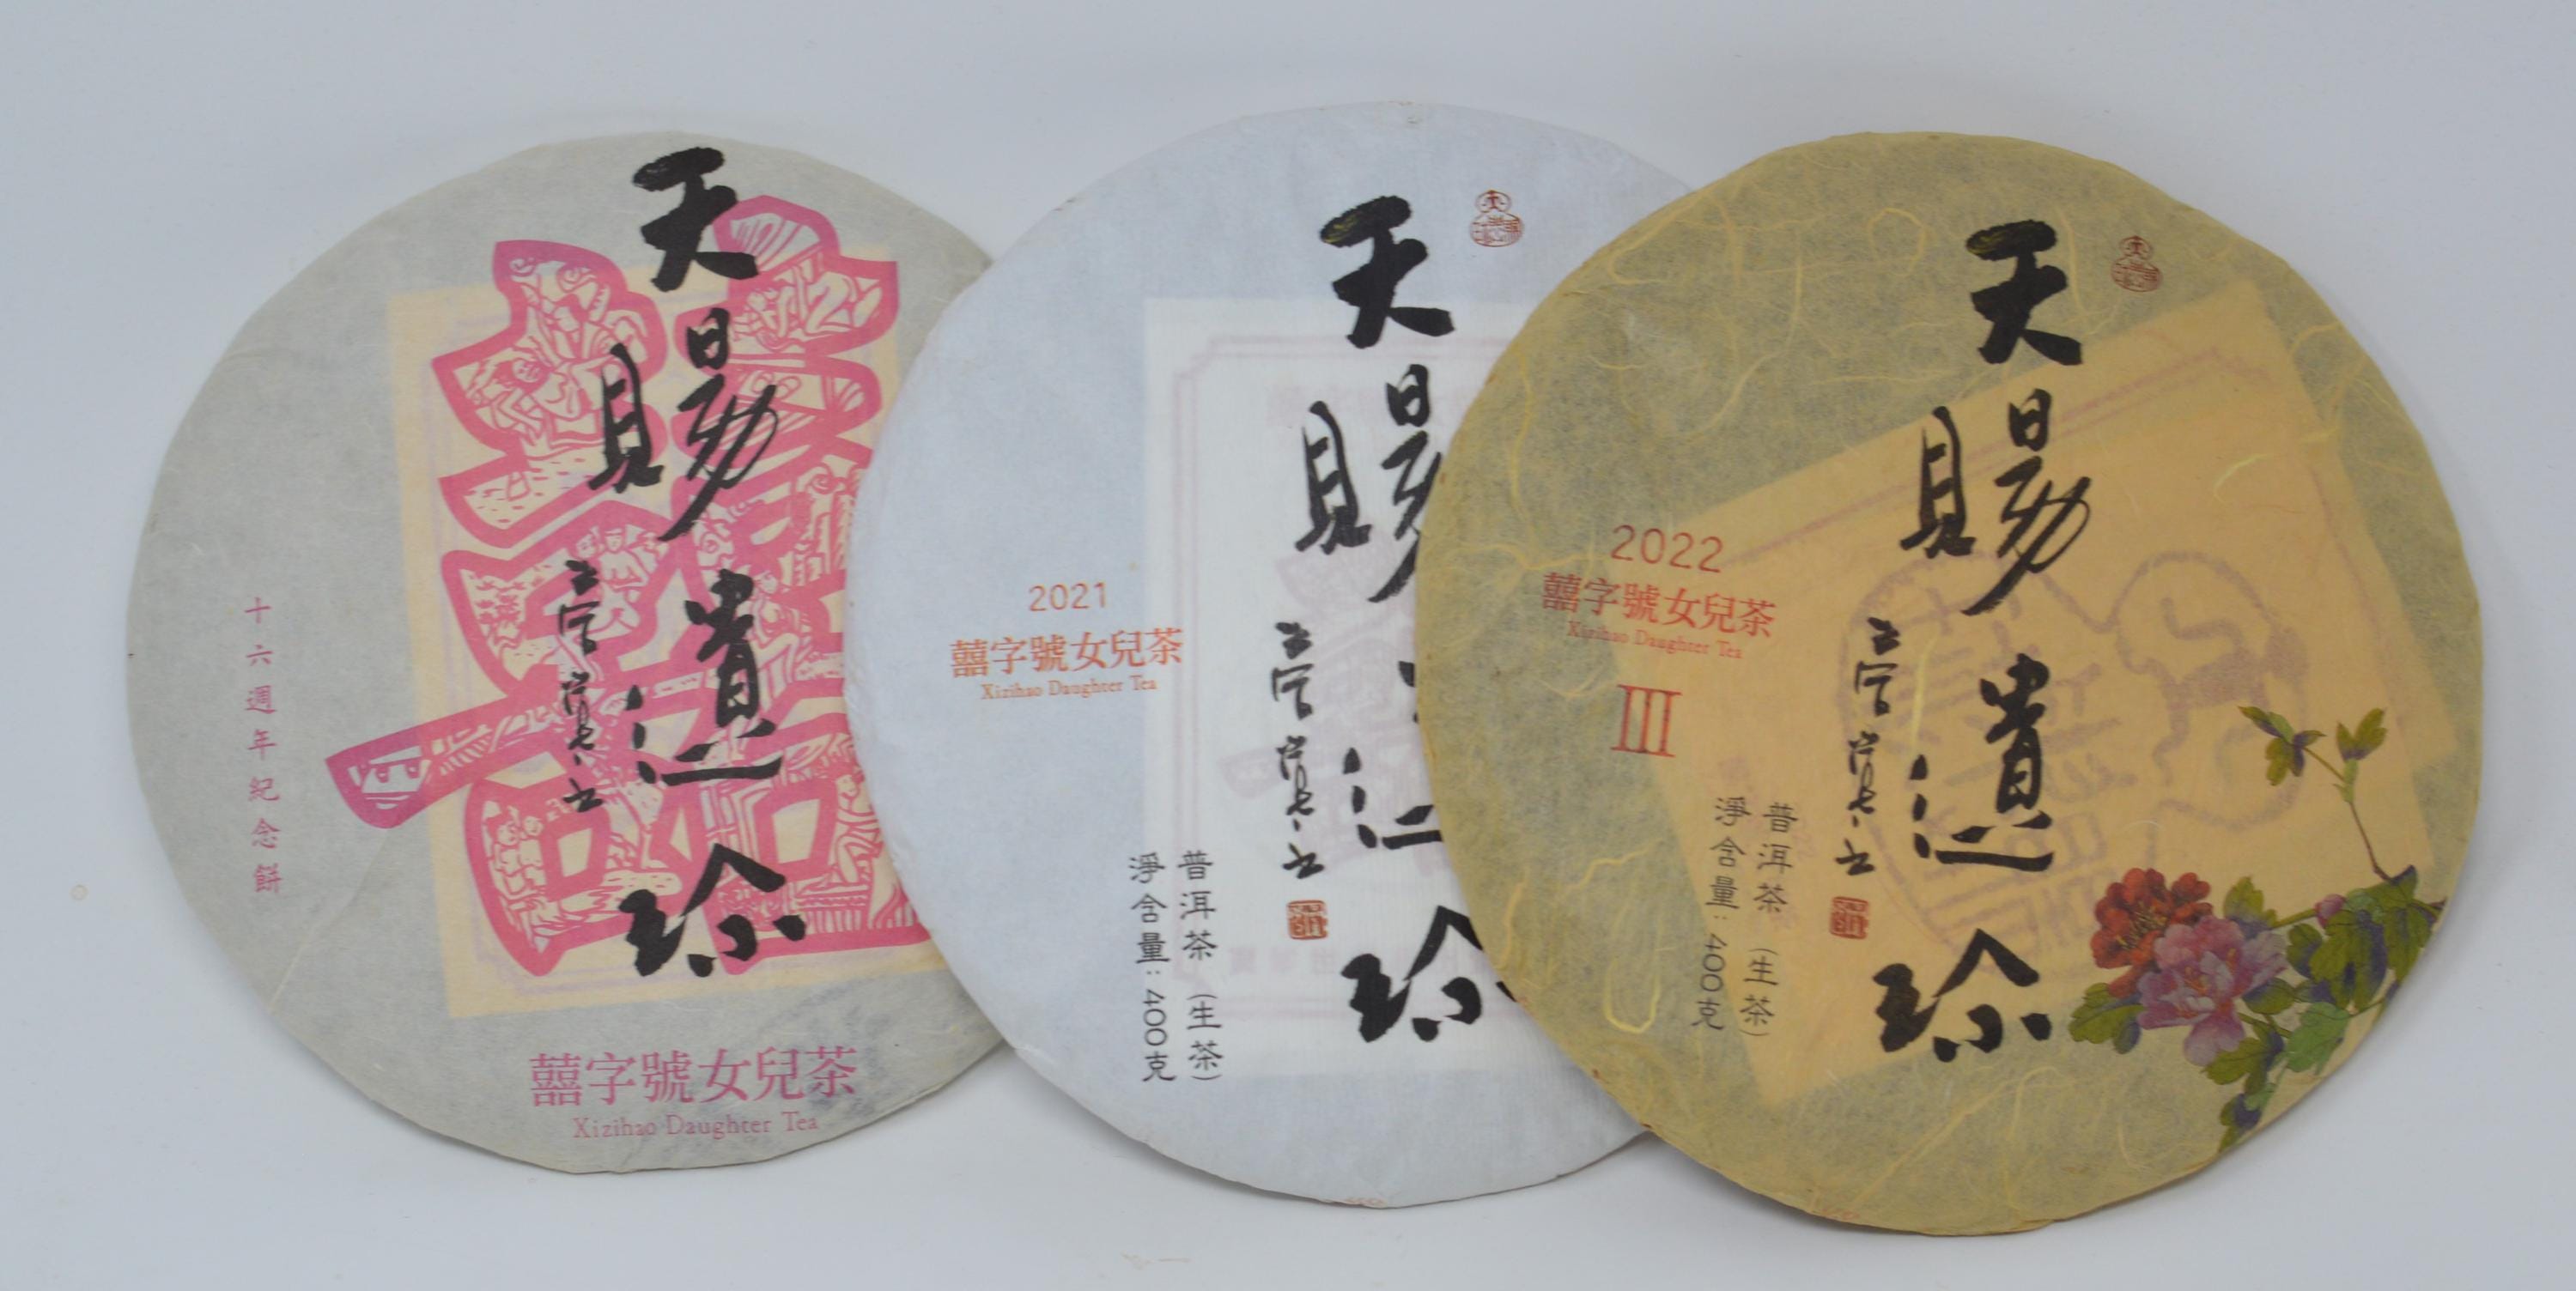 天賜遺珍
十六週年紀念餅
囍字號女兒茶
Xizihao Daughter Tea
天賜遺珍
2021
囍字號女兒茶
Xizihao Daughter Tea
普洱茶（生茶）
淨含量：400克
天賜遺珍
2022
囍字號女兒茶
Xizihao Daughter Tea
III
普洱茶（生茶）
淨含量：400克